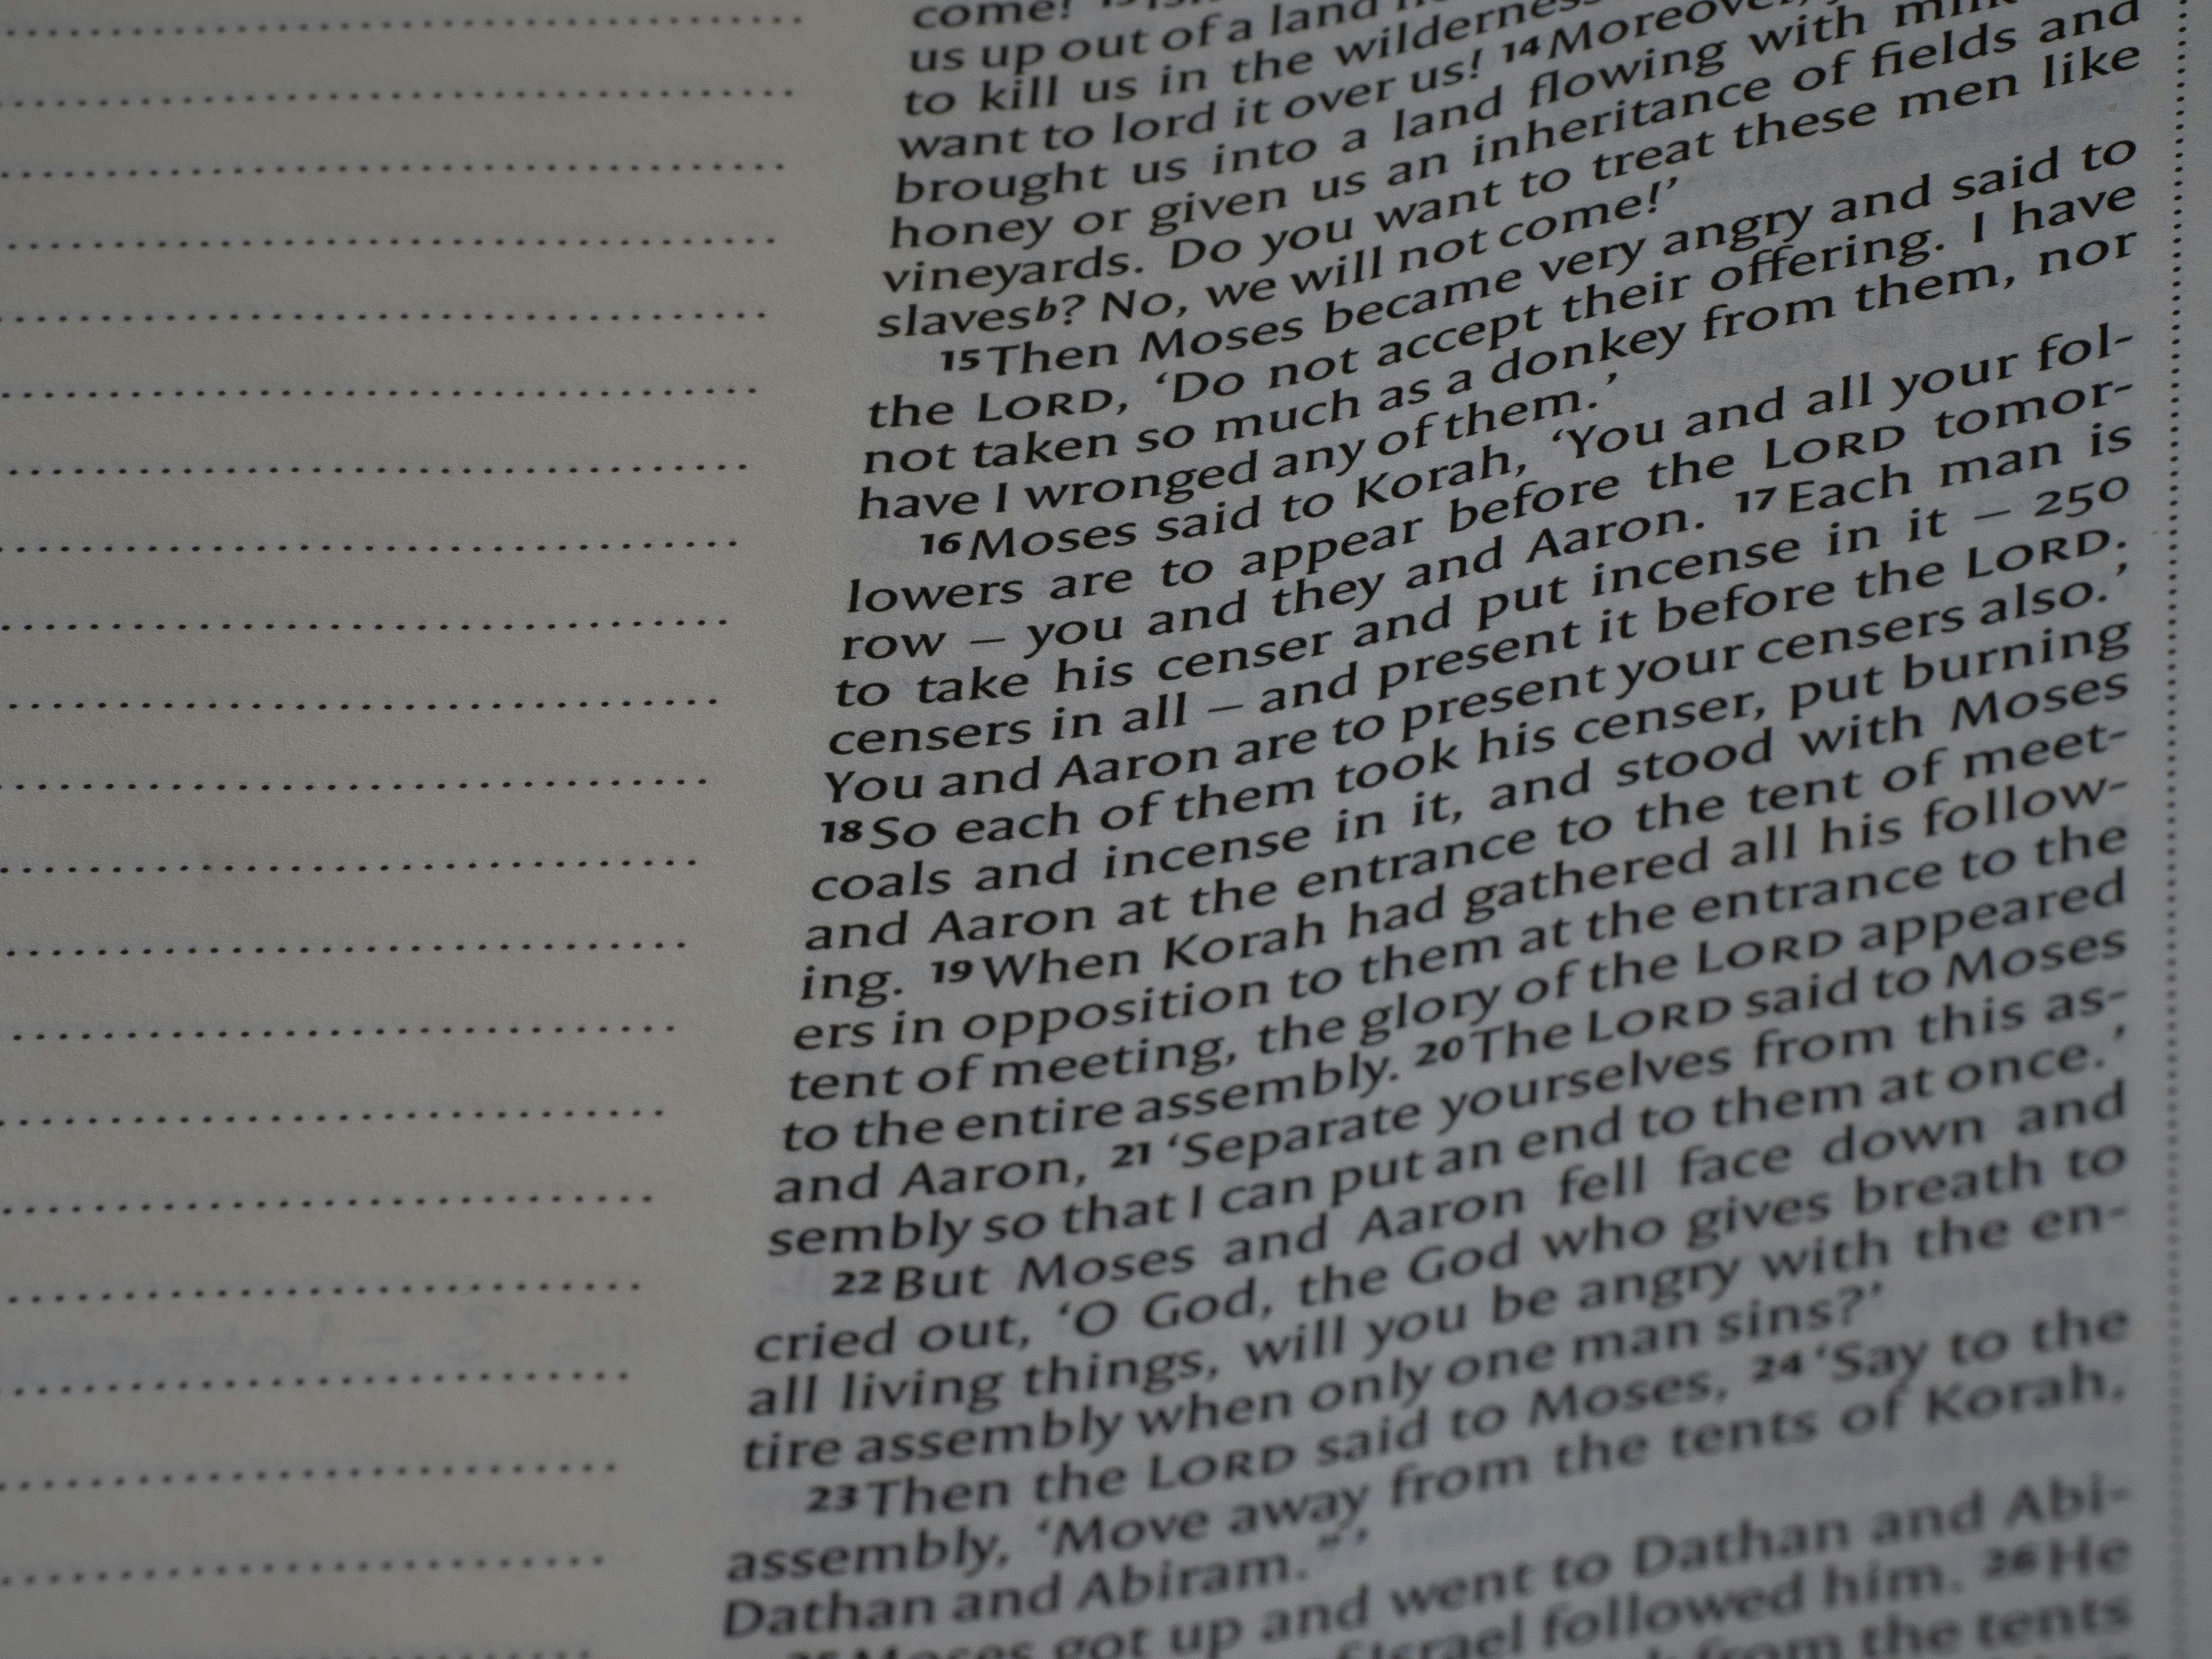 come!
us up out of a land
to kill us in the wilderness
want to lord it over us! 14 Moreover,
brought us into a land flowing with milk
honey or given us an inheritance of fields and
vineyards. Do you want to treat these men like
slavesb? No, we will not come!’
15 Then Moses became very angry and said to
the LORD, ‘Do not accept their offering. I have
not taken so much as a donkey from them, nor
have I wronged any of them.’
16 Moses said to Korah, ‘You and all your fol-
lowers are to appear before the LORD tomor-
row – you and they and Aaron. 17 Each man is
to take his censer and put incense in it – 250
censers in all – and present it before the LORD.
You and Aaron are to present your censers also.’
18 So each of them took his censer, put burning
coals and incense in it, and stood with Moses
and Aaron at the entrance to the tent of meet-
ing. 19 When Korah had gathered all his follow-
ers in opposition to them at the entrance to the
tent of meeting, the glory of the LORD appeared
to the entire assembly. 20 The LORD said to Moses
and Aaron, 21 ‘Separate yourselves from this as-
sembly so that I can put an end to them at once.’
22 But Moses and Aaron fell face down and
cried out, ‘O God, the God who gives breath to
all living things, will you be angry with the en-
tire assembly when only one man sins?’
23 Then the LORD said to Moses, 24 ‘Say to the
assembly, ‘Move away from the tents of Korah,
Dathan and Abiram.” ’
25 Moses got up and went to Dathan and Abi-
of Israel followed him. 26 He
from the tents